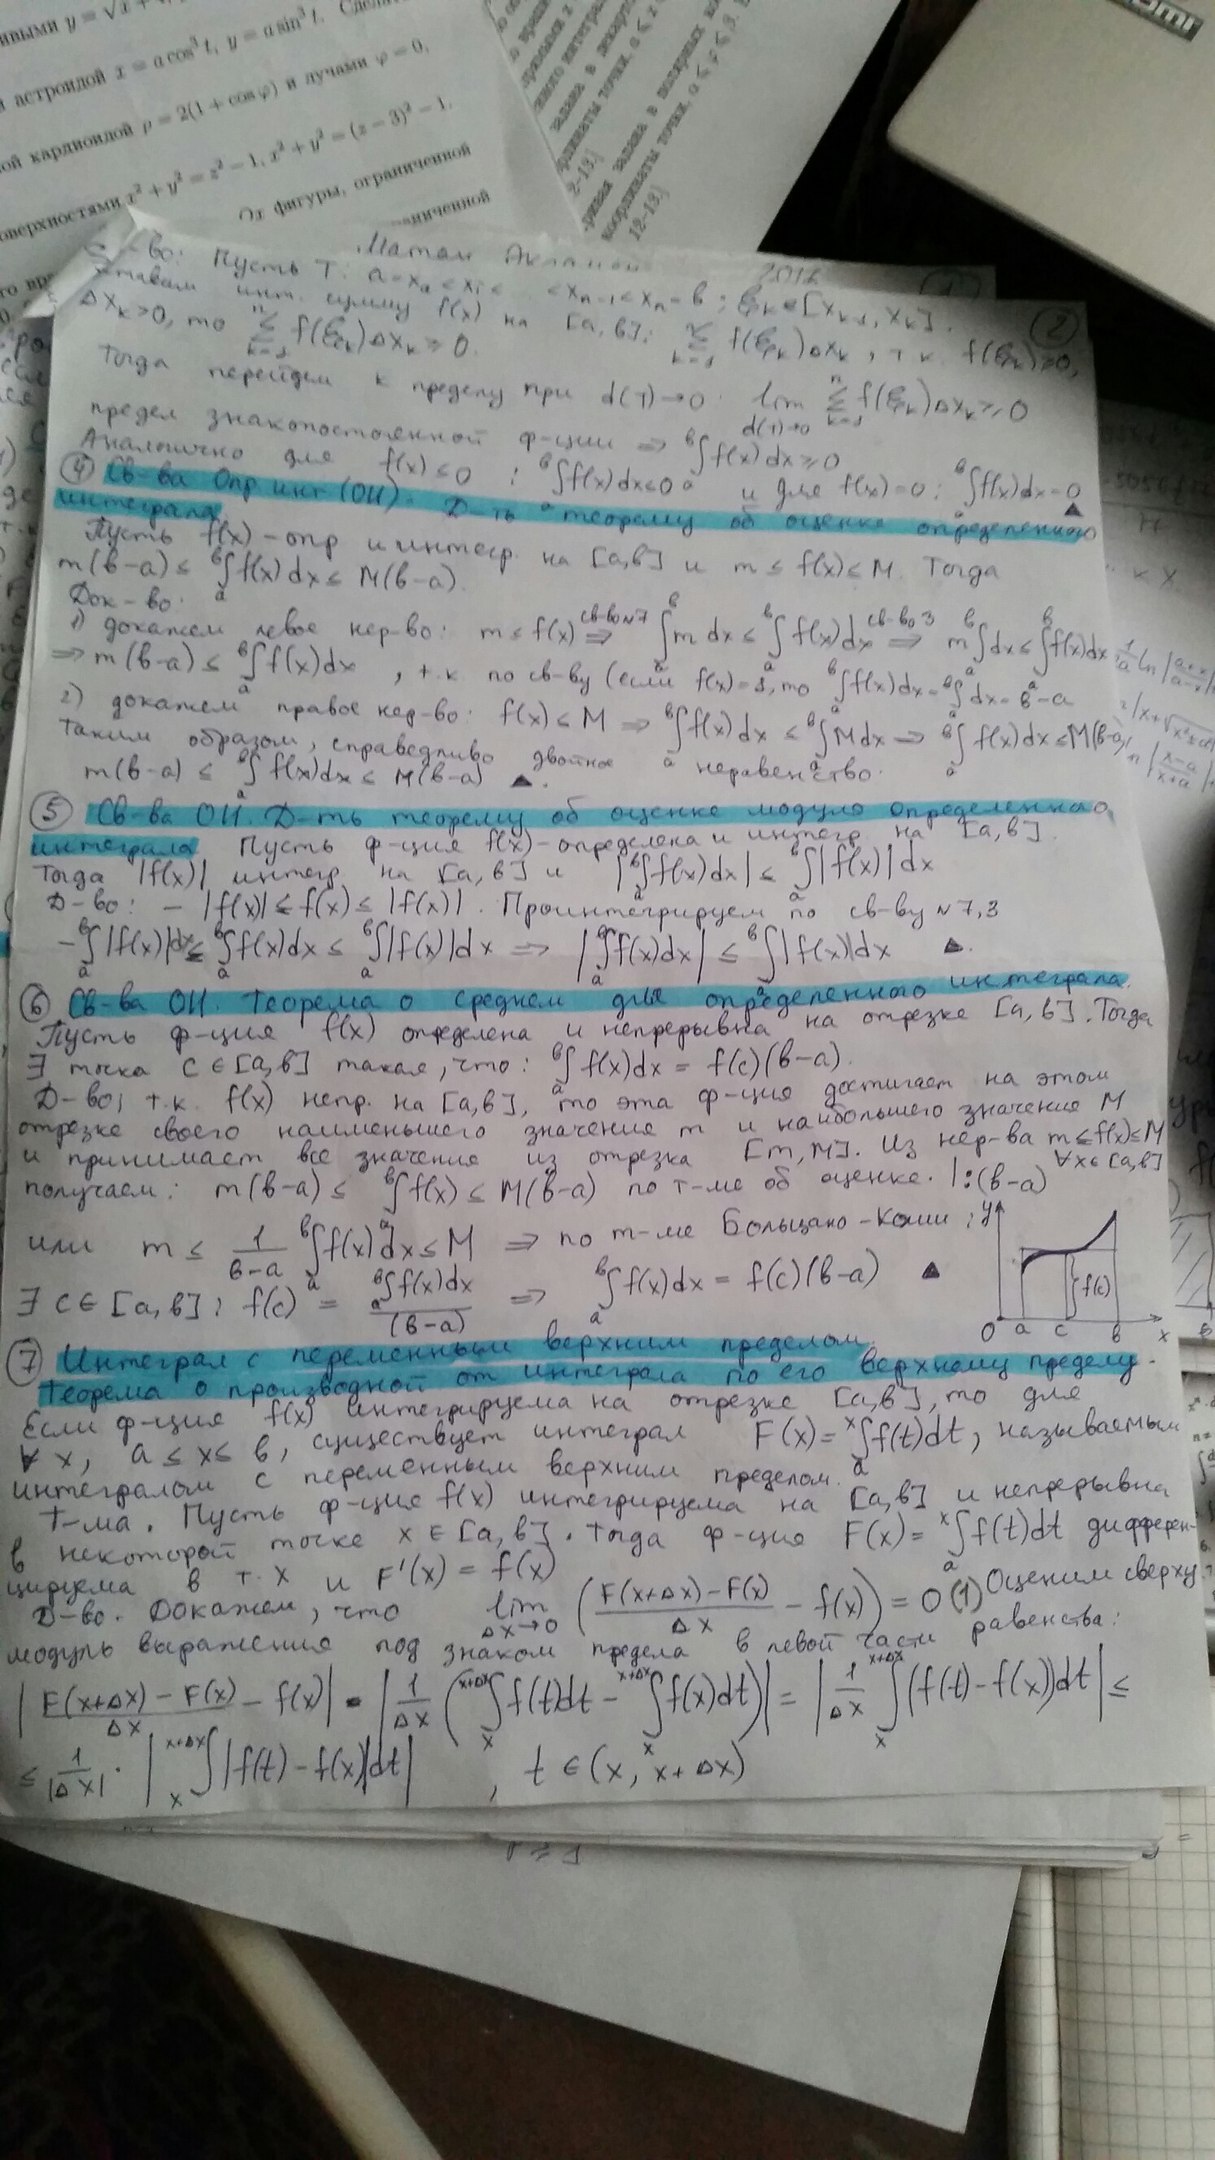 ивыми y = √x +
астроидой x = a cos³ t, y = a sin³ t. Сдела
ой кардиоидой ρ = 2(1 + cos φ) и лучами φ = 0,
оверхностями x² + y² = z² − 1, x² + y² = (z − 3)² − 1.
Ox фигуры, ограниченной
ниченной
12-13.]
Матан 2016
Д-во: Пусть T: a=x₀<x₁< <xₙ₋₁<xₙ=b; ξₖ∈[xₖ₋₁, xₖ].
инт. сумму f(x) на [a,b]: Σ f(ξₖ)Δxₖ, т.к. f(ξₖ)≥0,
②
Δxₖ>0, то Σ f(ξₖ)Δxₖ ≥ 0.
Тогда перейдем к пределу при d(T)→0 lim Σ f(ξₖ)Δxₖ ≥ 0
предел знакопостоянной ф-ции ⇒ ∫ₐᵇ f(x)dx ≥ 0
Аналогично для f(x) ≤ 0 : ∫ₐᵇ f(x)dx ≤ 0 и для f(x)=0: ∫ₐᵇ f(x)dx = 0 ▲
④ Св-ва Опр инт (ОИ). Д-ть теорему об оценке определенного
интеграла
Пусть f(x) – опр и интегр. на [a,b] и m ≤ f(x) ≤ M. Тогда
m(b-a) ≤ ∫ₐᵇ f(x)dx ≤ M(b-a).
Док-во:
1) докажем левое нер-во: m ≤ f(x) ⇒(св-во №7) ∫ₐᵇ m dx ≤ ∫ₐᵇ f(x)dx ⇒(св-во 3) m∫ₐᵇ dx ≤ ∫ₐᵇ f(x)dx
⇒ m(b-a) ≤ ∫ₐᵇ f(x)dx, т.к. по св-ву (если f(x)=1, то ∫ₐᵇ f(x)dx = ∫ₐᵇ dx = b-a
2) докажем правое нер-во: f(x) ≤ M ⇒ ∫ₐᵇ f(x)dx ≤ ∫ₐᵇ M dx ⇒ ∫ₐᵇ f(x)dx ≤ M(b-a)
Таким образом, справедливо двойное неравенство:
m(b-a) ≤ ∫ₐᵇ f(x)dx ≤ M(b-a) ▲.
⑤ Св-ва ОИ. Д-ть теорему об оценке модуля определенного
интеграла Пусть ф-ция f(x) – определена и интегр. на [a,b].
Тогда |f(x)| интегр. на [a,b] и |∫ₐᵇ f(x)dx| ≤ ∫ₐᵇ |f(x)|dx
Д-во: -|f(x)| ≤ f(x) ≤ |f(x)|. Проинтегрируем по св-ву №7,3
-∫ₐᵇ |f(x)|dx ≤ ∫ₐᵇ f(x)dx ≤ ∫ₐᵇ |f(x)|dx ⇒ |∫ₐᵇ f(x)dx| ≤ ∫ₐᵇ |f(x)|dx ▲.
⑥ Св-ва ОИ. Теорема о среднем для определенного интеграла.
Пусть ф-ция f(x) определена и непрерывна на отрезке [a,b]. Тогда
∃ точка c∈[a,b] такая, что: ∫ₐᵇ f(x)dx = f(c)(b-a).
Д-во: т.к. f(x) непр. на [a,b], то эта ф-ция достигает на этом
отрезке своего наименьшего значения m и наибольшего значения M
и принимает все значения из отрезка [m,M]. Из нер-ва m≤f(x)≤M ∀x∈[a,b]
получаем: m(b-a) ≤ ∫ₐᵇ f(x) ≤ M(b-a) по т-ме об оценке. |:(b-a)
или m ≤ 1/(b-a) ∫ₐᵇ f(x)dx ≤ M ⇒ по т-ме Больцано-Коши:
∃ c∈[a,b]: f(c) = ∫ₐᵇ f(x)dx/(b-a) ⇒ ∫ₐᵇ f(x)dx = f(c)(b-a) ▲
y f(c) 0 a c b x
⑦ Интеграл с переменным верхним пределом.
Теорема о производной от интеграла по его верхнему пределу.
Если ф-ция f(x) интегрируема на отрезке [a,b], то для
∀ x, a ≤ x ≤ b, существует интеграл F(x) = ∫ₐˣ f(t)dt, называемый
интегралом с переменным верхним пределом.
Т-ма. Пусть ф-ция f(x) интегрируема на [a,b] и непрерывна
в некоторой точке x∈[a,b]. Тогда ф-ция F(x) = ∫ₐˣ f(t)dt дифферен-
цируема в т. x и F'(x) = f(x)
Д-во. Докажем, что lim_{Δx→0} ((F(x+Δx)-F(x))/Δx - f(x)) = 0 (1) Оценим сверху
модуль выражения под знаком предела в левой части равенства:
|(F(x+Δx)-F(x))/Δx - f(x)| = |1/Δx (∫ₓˣ⁺ᐞˣ f(t)dt - ∫ₓˣ⁺ᐞˣ f(x)dt)| = |1/Δx ∫ₓˣ⁺ᐞˣ (f(t)-f(x))dt| ≤
≤ 1/|Δx| · |∫ₓˣ⁺ᐞˣ |f(t)-f(x)|dt|, t∈(x, x+Δx)